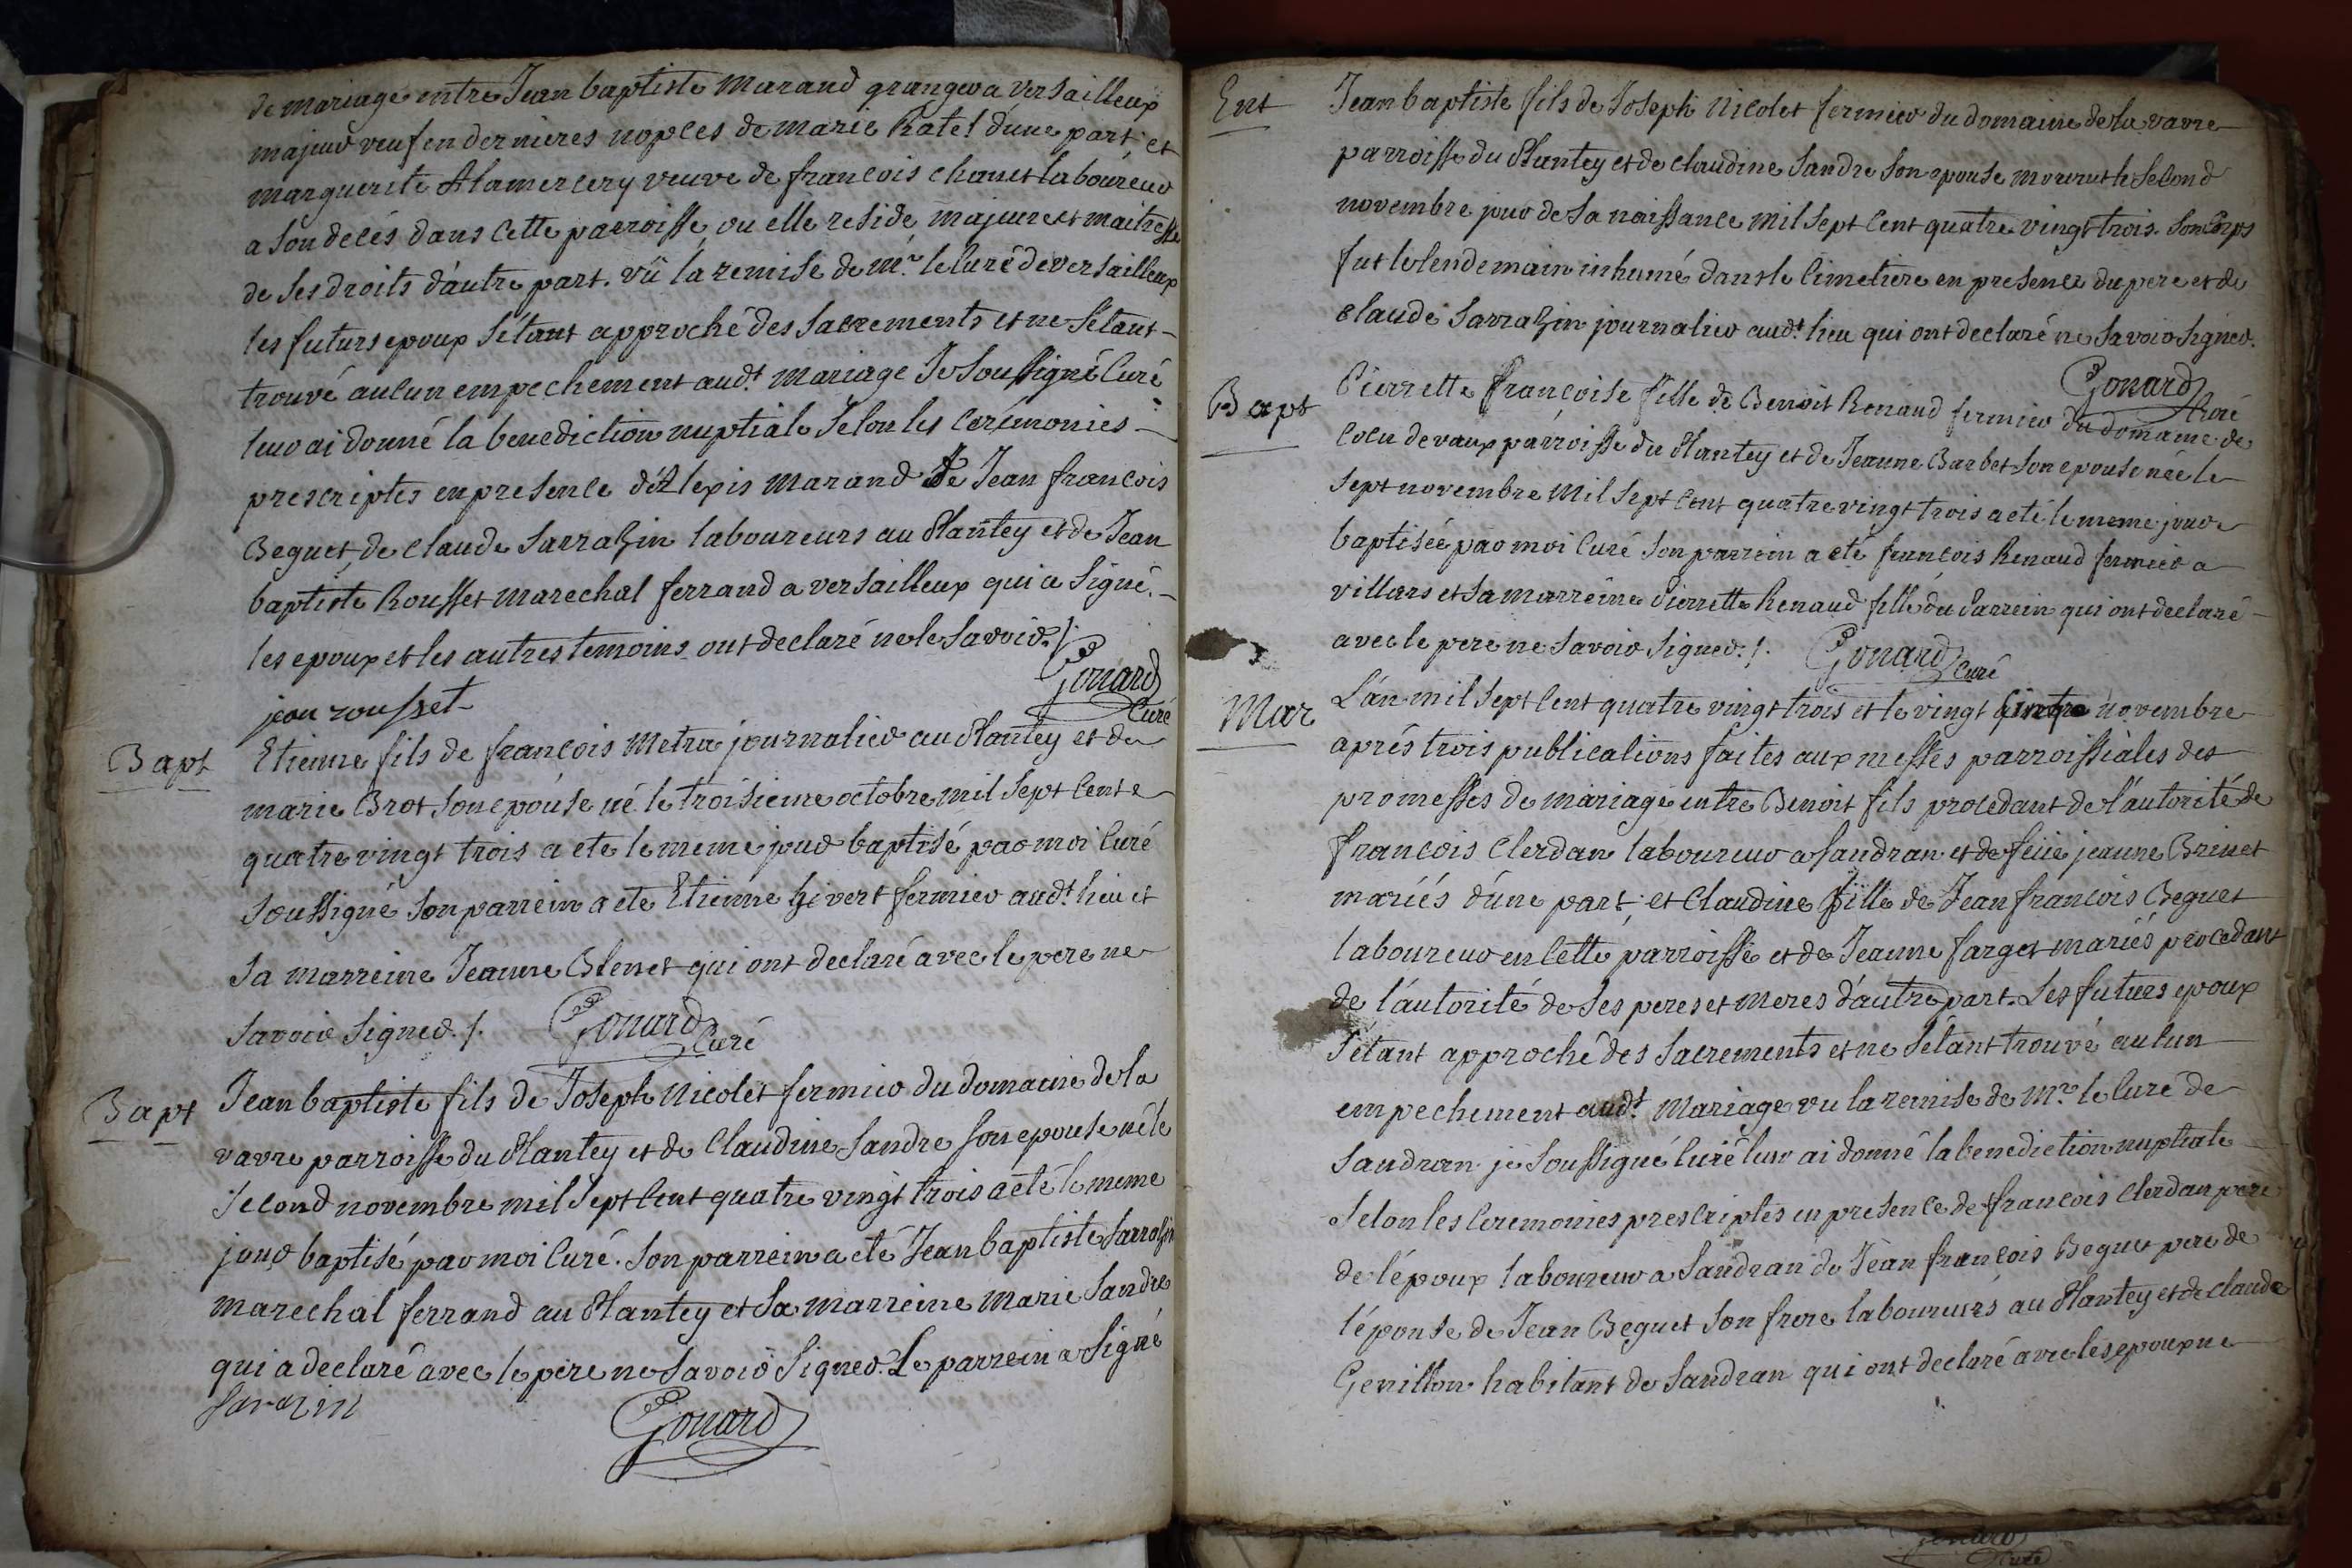 de mariage entre Jean baptiste Marand granger a versailleux
majeur veuf en dernieres noples de marie Ratel d'une part et
marguerite Alamercery veuve de francois chanet laboureur
a son decés dans Cette parroisse ou elle reside majeure et maitresse
de Ses droits d'autre part. vû la remise de mr. le Curé de versailleux
les futurs epoux S'étant approché des Sacrements et ne S'étant
trouvé aucun empechement audt. mariage Je Soussigné Curé
leur ai donné la benediction nuptiale Selon les Cerémonies
prescriptes en presence d'Alexis Marand de Jean francois
Beguet, de Claude Sarrazin laboureurs au Plantey et de Jean
baptiste Rousset marechal ferrand a versailleux qui a Signé.
les epoux et les autres temoins ont declaré ne le Savoir ./.
jean rousset
Gonard
Curé
Bapt
Etienne fils de francois Metra journalier au Plantey et de
marie Brot Son epouse né le troisieme octobre mil Sept Cent
quatre vingt trois a eté le meme jour baptisé par moi Curé
Soussigné Son parrein a eté Etienne hivert fermier audt. lieu et
Sa marreine Jeanne Blenet qui ont declaré avec le pere ne
Savoir Signer ./. Gonard Curé
Bapt
Jean baptiste fils de Joseph Nicolet fermier du domaine de la
vavre parroisse du Plantey et de Claudine Sandre Son epouse né le
Second novembre mil Sept Cent quatre vingt trois a eté le meme
jour baptisé par moi Curé. Son parrein a eté Jean baptiste Sarrazin
marechal ferrand au Plantey et Sa marreine marie Sandre
qui a declaré avec le père ne Savoir Signer. Le parrein a Signé
Sarazin
Gonard
Ent
Jean baptiste fils de Joseph Nicolet fermier du domaine de la vavre
parroisse du Plantey et de Claudine Sandre Son epouse mourut le Second
novembre jour de Sa naissance mil Sept Cent quatre vingt trois. Son Corps
fut le lendemain inhumé dans le Cimetiere en presence du pere et de
Claude Sarrazin journalier audt. lieu qui ont declaré ne Savoir Signer.
Gonard Curé
Bapt
Pierrette francoise fille de Benoit Renaud fermier du domaine de
Cocu de vaux parroisse du Plantey et de Jeanne Barbet Son epouse née le
Sept novembre Mil Sept Cent quatre vingt trois a eté le meme jour
baptisée par moi Curé Son parrein a eté francois Renaud fermier a
villars et Sa marreine Pierrette Renaud fille du Parrein qui ont declaré
avec le pere ne Savoir Signer ./. Gonard Curé
Mar
L'an mil Sept Cent quatre vingt trois et le vingt novembre
aprés trois publications faites aux messes parroissiales des
promesses de mariage entre Benoit fils procedant de l'autorité de
francois Clerdan laboureur a Sandran et de feüe jeanne Brinet
mariés d'une part, et Claudine fille de Jean francois Beguet
laboureur en Cette parroisse et de Jeanne farget mariés procedant
de l'autorité de Ses peres et meres d'autre part. Les futurs epoux
S'étant approché des Sacrements et ne S'étant trouvé aucun
empechement audt. Mariage vu la remise de Mr. le Curé de
Sandran je Soussigné Curé leur ai donné la benediction nuptiale
Selon les Ceremonies prescriptes en presence de francois Clerdan pere
de l'époux laboureur a Sandran de Jean francois Beguet pere de
l'épouse de Jean Beguet Son frere laboureurs au Plantey et de Claude
Genillon habitant de Sandran qui ont declaré avec les epoux ne
Gonard
Curé